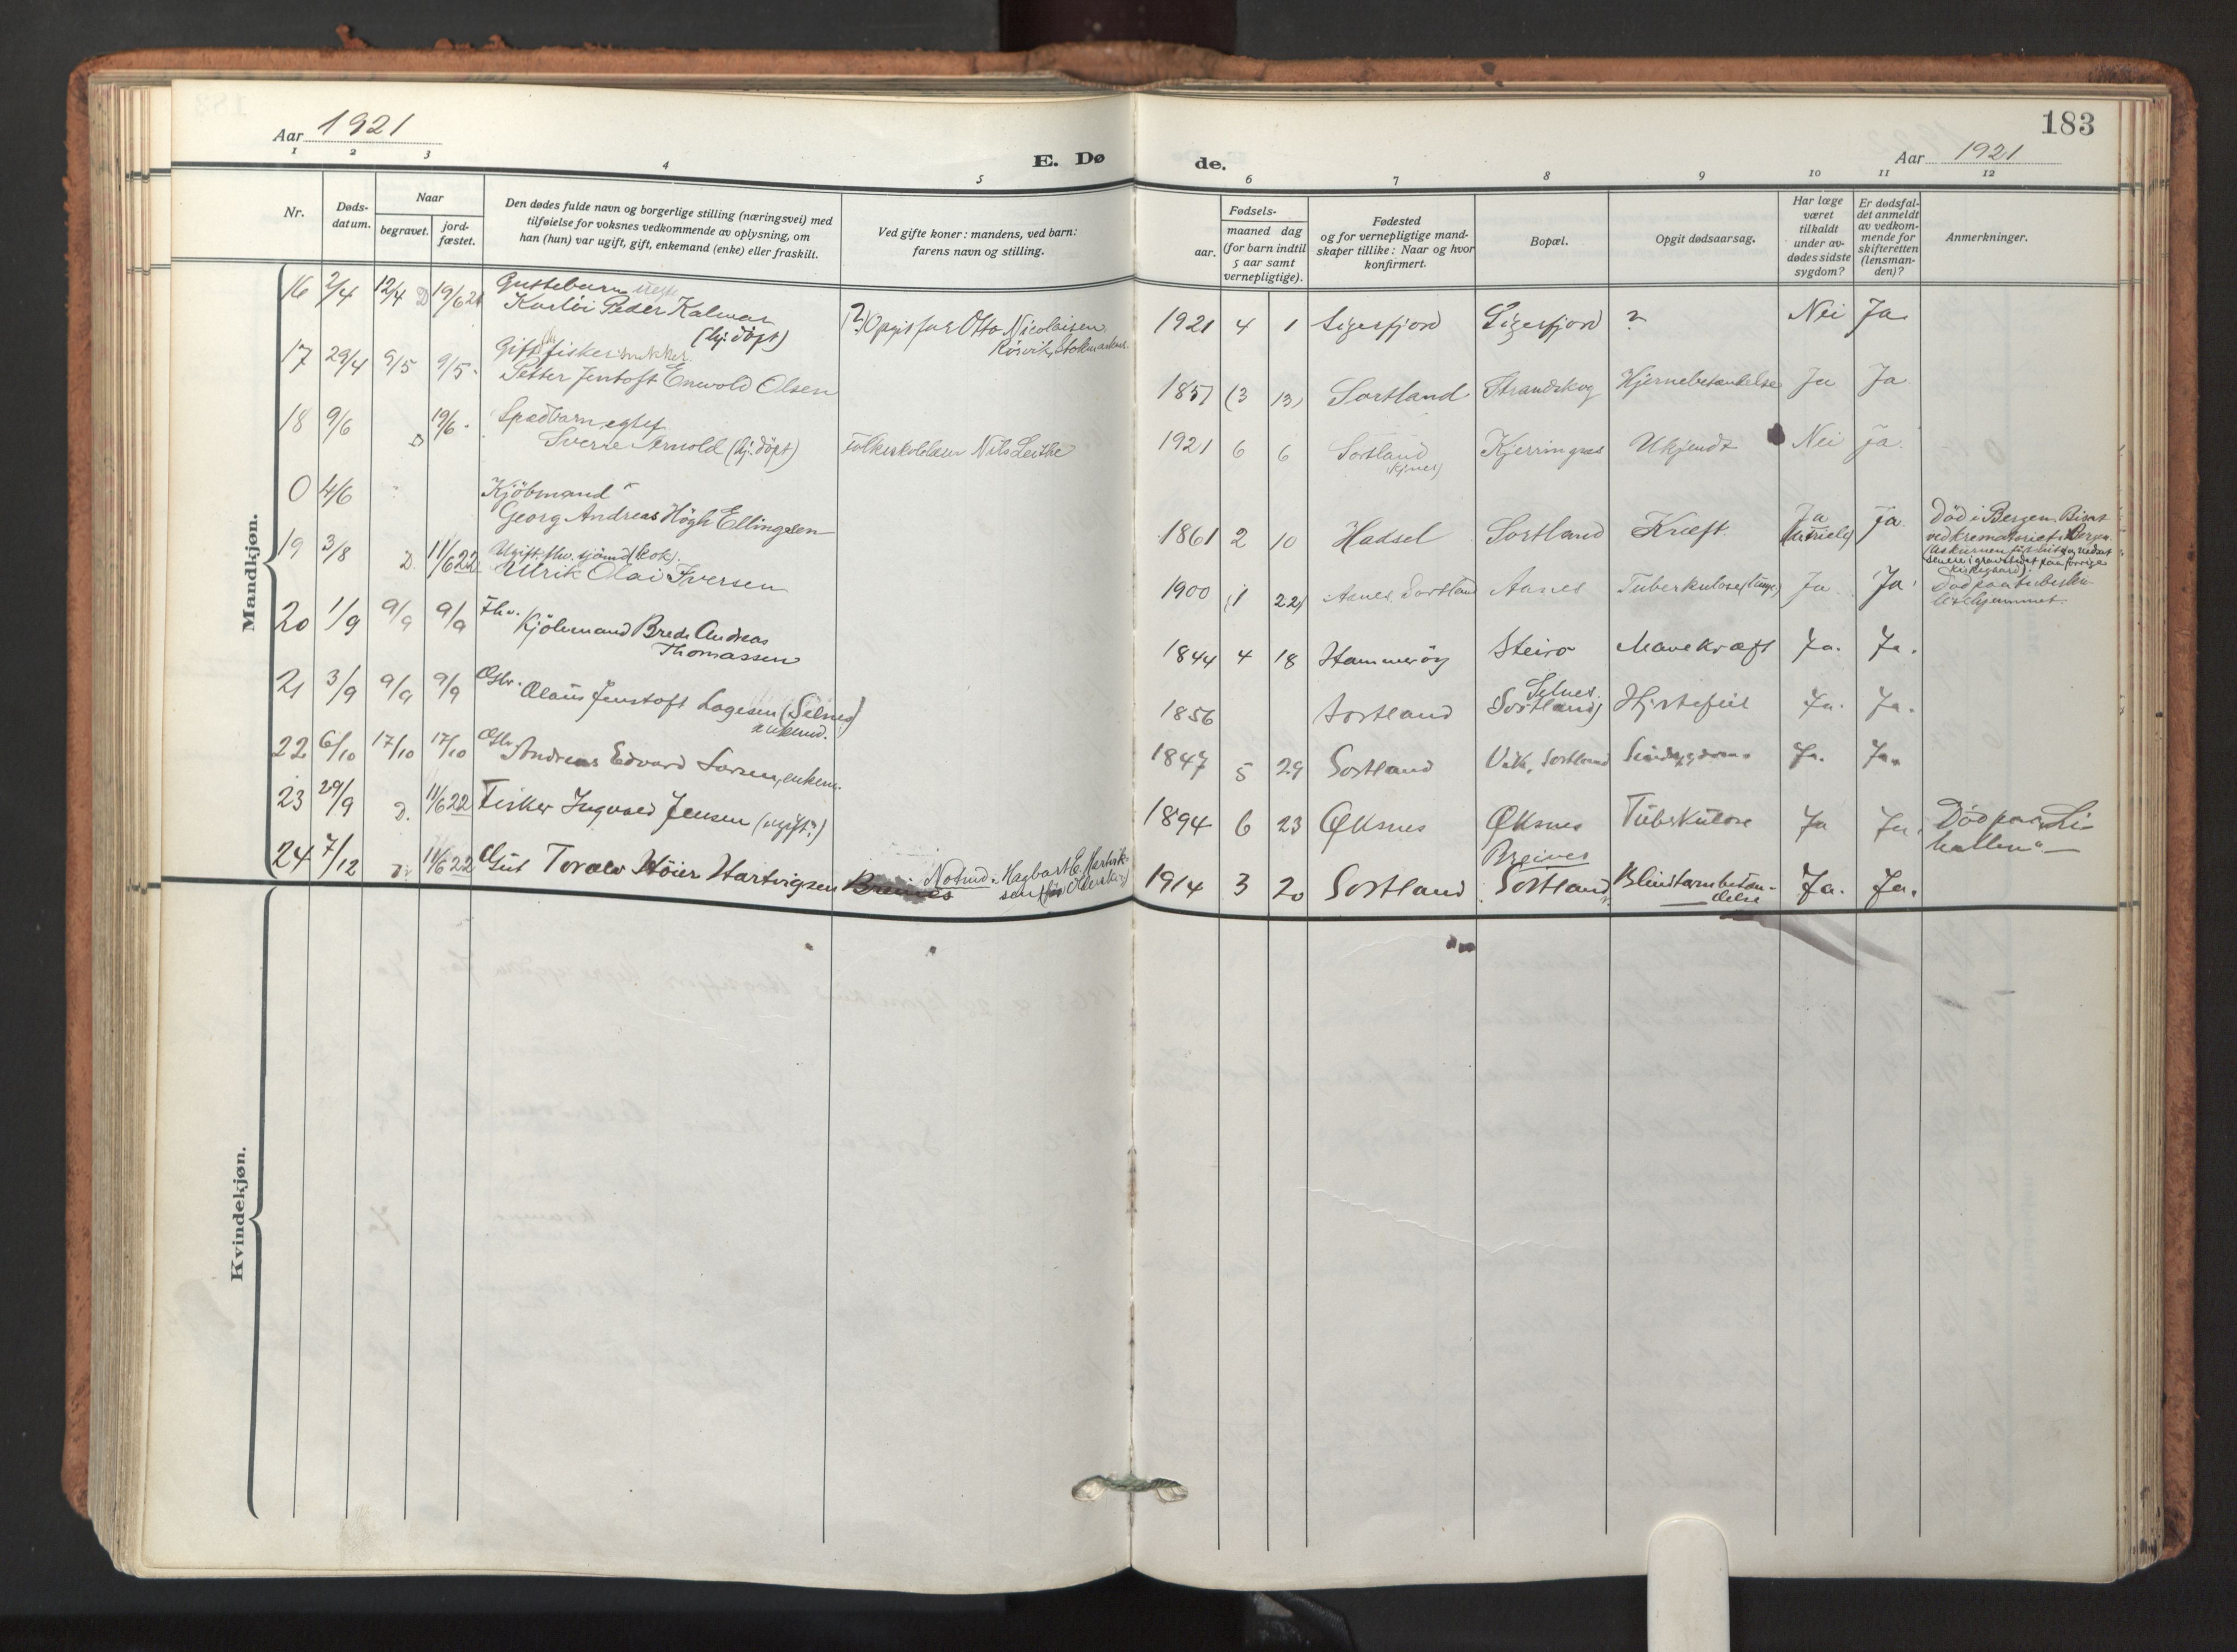 183
Aar 1921
Aar 1921
E. Dø
de.
1 2 3 4 5
6 7 8 9 10 11 12
Nr.
Døds-
datum.
Naar
begravet.
jord-
fæstet.
Den dødes fulde navn og borgerlige stilling (næringsvei) med
tilføielse for voksnes vedkommende av oplysning, om
han (hun) var ugift, gift, enkemand (enke) eller fraskilt.
Ved gifte koner: mandens, ved barn:
farens navn og stilling.
Fødsels-
aar.
maaned dag
(for barn indtil
5 aar samt
vernepligtige).
Fødested
og for vernepligtige mand-
skaper tillike: Naar og hvor
konfirmert.
Bopæl.
Opgit dødsaarsag.
Har læge
været
tilkaldt
under av-
dødes sidste
sygdom?
Er dødsfal-
det anmeldt
av vedkom-
mende for
skifteretten
(lensman-
den)?
Anmerkninger.
Mandkjøn.
16 2/4 12/4 D 19/6 21
Peder Kalmar
(hj. döpt)
(?) Opgit far Otto Nicolaisen
Rösvik, Stokmarknes.
1921 4 1 Sigerfjord Sigerfjord ? Nei Ja
17 29/4 9/5 9/5 Gift fisker
Petter Jentoft Enevold Olsen
1857 (3 13) Sortland Strandskog Hjernebetændelse Ja Ja
18 9/6 D 19/6 Spædbarn, egtef.
Sverre Arnold (hj. döpt)
Nils Leithe
1921 6 6 Sortland Kjerringnes Ukjendt Nei Ja.
0 4/6 Kjöbmand
Georg Andreas Högh Ellingsen
1861 2 10 Hadsel Sortland Kræft. Ja Ja.
Död i Bergen. Bisat
ved krematoriet i Bergen.
19 3/8 D. 11/6 22 Ugift, fhv. sjömd (kok).
Ulrik Olai Iversen
1900 (1 22) Aanes, Sortland Aanes Tuberkulose (lunge) Ja Ja
20 1/9 9/9 9/9 Fhv.
Kjöbmand Brede Andreas
Thomassen
1844 4 18 Hammeröy Steiro Mavekræft Ja. Ja.
21 3/9 9/9 9/9 Olaus Jentoft Lagesen (Selnes)
enkemd.
1856 Sortland Selnes.
Sortland Hjertefeil Ja. Ja.
22 6/10 17/10 17/10 Andreas Edvard Larsen, enkem.
1847 5 29 Sortland Vik, Sortland Ja. Ja.
23 29/9 D. 11/6 22 Fisker Ingvald Jensen (ugift?)
1894 6 23 Øksnes Øksnes Tuberkulose Ja Ja. Död paa
24 7/12 D. 11/6 22 Gut Toralv Höier Hartvigsen Breines
Hagbart E. Hartvik-
sen
1914 3 20 Sortland Breines
Sortland Blindtarmbetæn-
delse Ja. Ja.
Kvindekjøn.